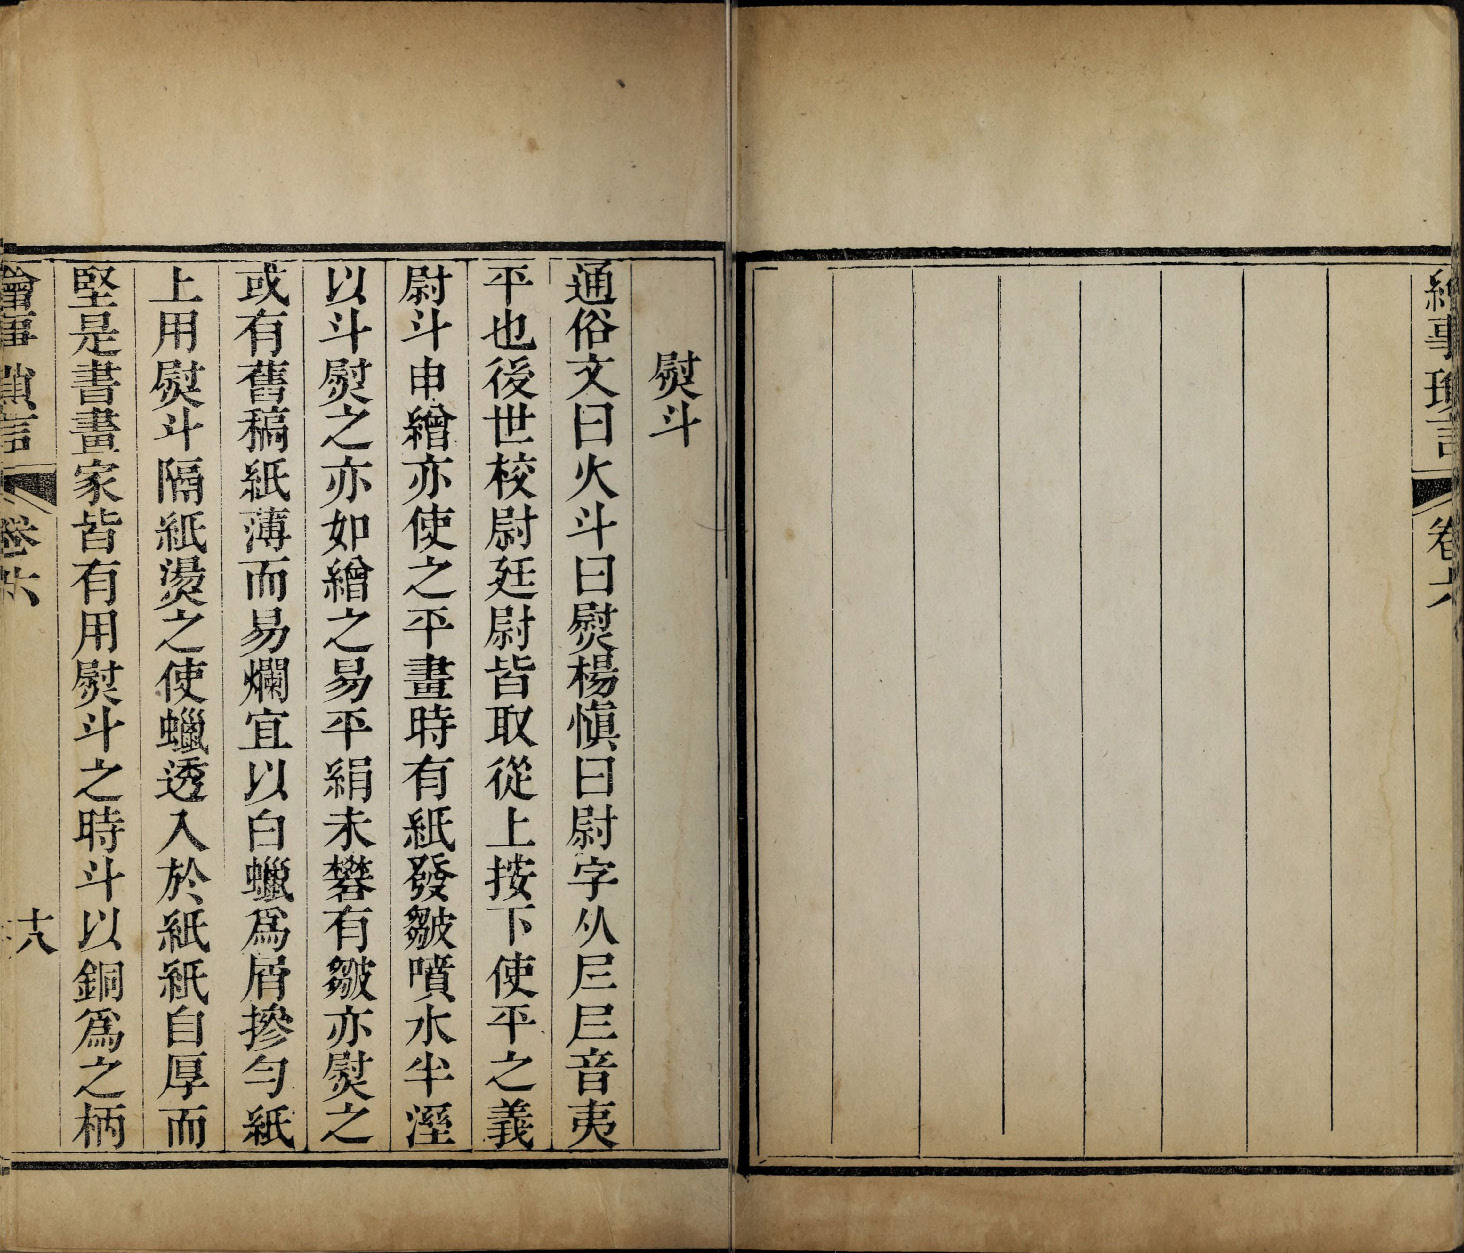 繪事瑣言
卷六
熨斗
通俗文曰火斗曰熨楊愼曰尉字从𡰥𡰥音夷
平也後世校尉廷尉皆取從上按下使平之義
尉斗申繒亦使之平畫時有紙發皺噴水半溼
以斗熨之亦如繒之易平絹未礬有皺亦熨之
或有舊稿紙薄而易爛宜以白蠟爲屑摻勻紙
上用熨斗隔紙燙之使蠟透入於紙紙自厚而
堅是書畫家皆有用熨斗之時斗以銅爲之柄
繪事瑣言
卷六
十八